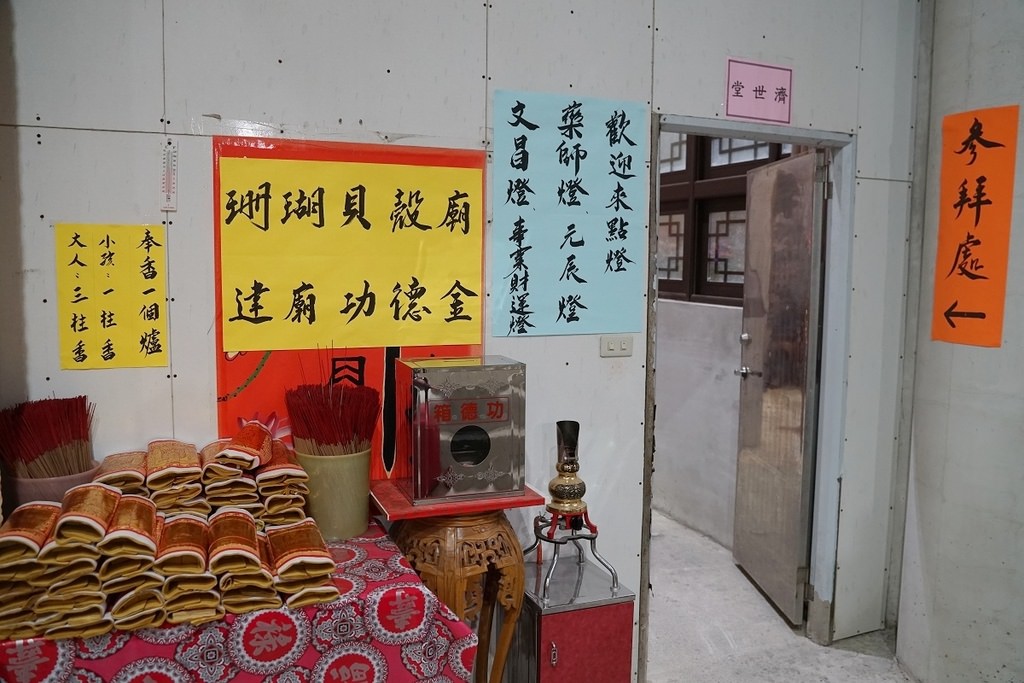 奉香一個爐
小孩：一柱香
大人：三柱香
珊瑚貝殼廟
建廟功德金
歡迎來點燈
藥師燈、元辰燈
文昌燈、事業財運燈
濟世堂
參拜處←
功德箱